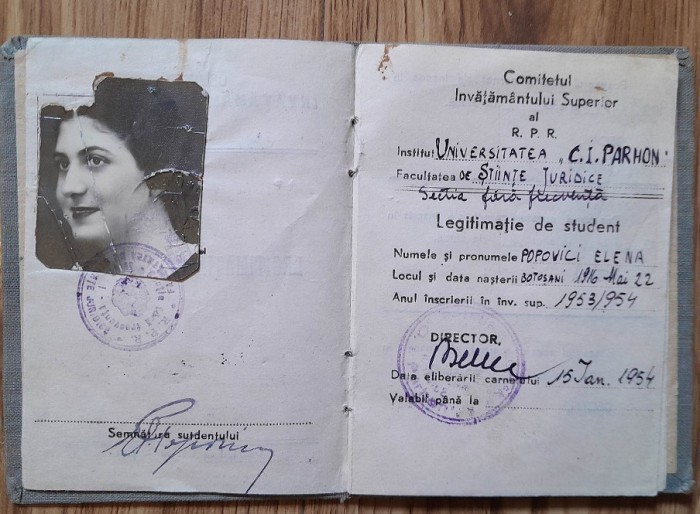 Semnătura sutdentului
Comitetul
Învățământului Superior
al
R. P. R.
Institut UNIVERSITATEA „C. I. PARHON"
Facultatea DE ȘTIINȚE JURIDICE
Secția fără frecvență
Legitimație de student
Numele și pronumele POPOVICI ELENA
Locul și data nașterii BOTOȘANI 1916 Mai 22
Anul înscrierii în înv. sup. 1953/954
DIRECTOR,
Data eliberării carnetului 15 Ian. 1954
Valabil până la